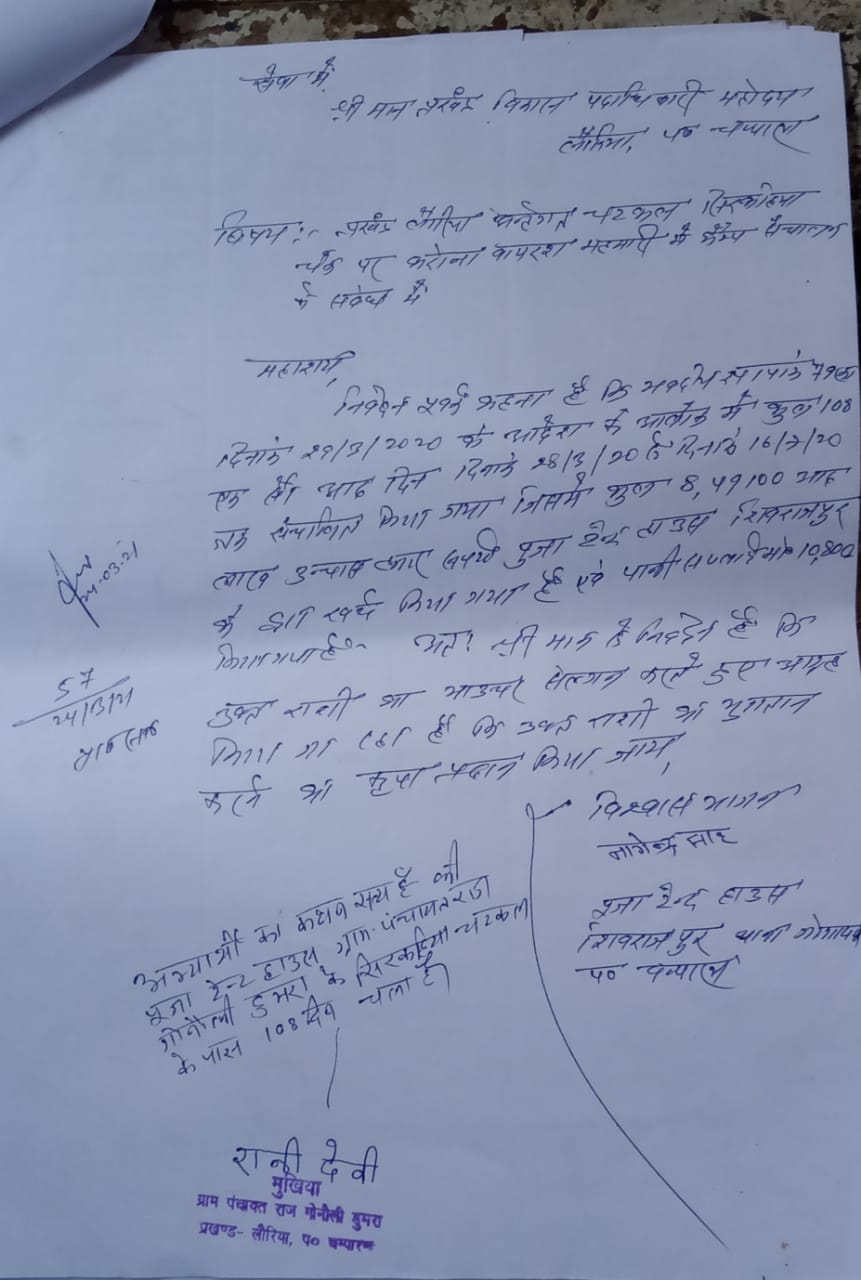 सेवा में,
श्री मान प्रखंड विकास पदाधिकारी महोदय
लौरिया, प० चम्पारण
विषय :- प्रखंड लौरिया अन्तर्गत चटकल सिरकहिया
चौक पर करोना वायरस महमारी में कैम्प संचालन
के संबंध में
महाशय,
निवेदन पूर्वक कहना है कि भवदीय
दिनांक 27/3/2020 के आदेश के आलोक में कुल 108
एक सौ आठ दिन दिनांक 28/3/20 से दिनांक 16/7/20
तक संचालित किया गया जिसमें कुल 8,49100 आठ
लाख उन्चास हजार पूजा टेन्ट हाउस शिवराजपुर
के द्वारा खर्च किया गया है एवं पानी 10,800
किया गया है। अतः श्री मान से निवेदन है कि
उक्त राशी का भाउचर संलग्न करते हुए आग्रह
किया जा रहा है कि उक्त राशी का भुगतान
करने की कृपा प्रदान किया जाय,
24.03.21
57
24/3/21
विश्वास भाजन
नागेन्द्र साह
पूजा टेन्ट हाउस
शिवराजपुर थाना
प० चम्पारण
अभ्यार्थी का कथन सत्य है की
पूजा टेन्ट हाउस ग्राम-पंचायत राज
गोनौली डुमरा के सिरकहिया चटकल
के पास 108 दिन चला है।
रानी देवी
मुखिया
ग्राम पंचायत राज गोनौली डुमरा
प्रखण्ड- लौरिया, प० चम्पारण